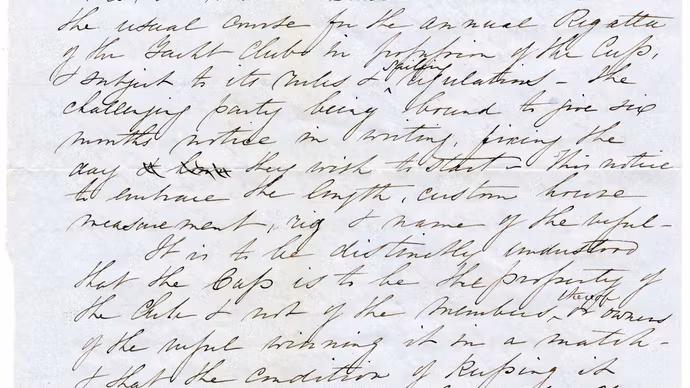 the usual course for the annual Regatta
of the Yacht Club in possession of the Cup,
& subject to its rules & sailing regulations – the
challenging party being bound to give six
months notice in writing, fixing the
day they wish to start – This notice
to embrace the length, custom house
measurement, rig & name of the vessel –
It is to be distinctly understood
that the Cup is to be the property of
the Club & not of the members thereof or owners
of the vessel winning it in a match –
& that the condition of keeping it